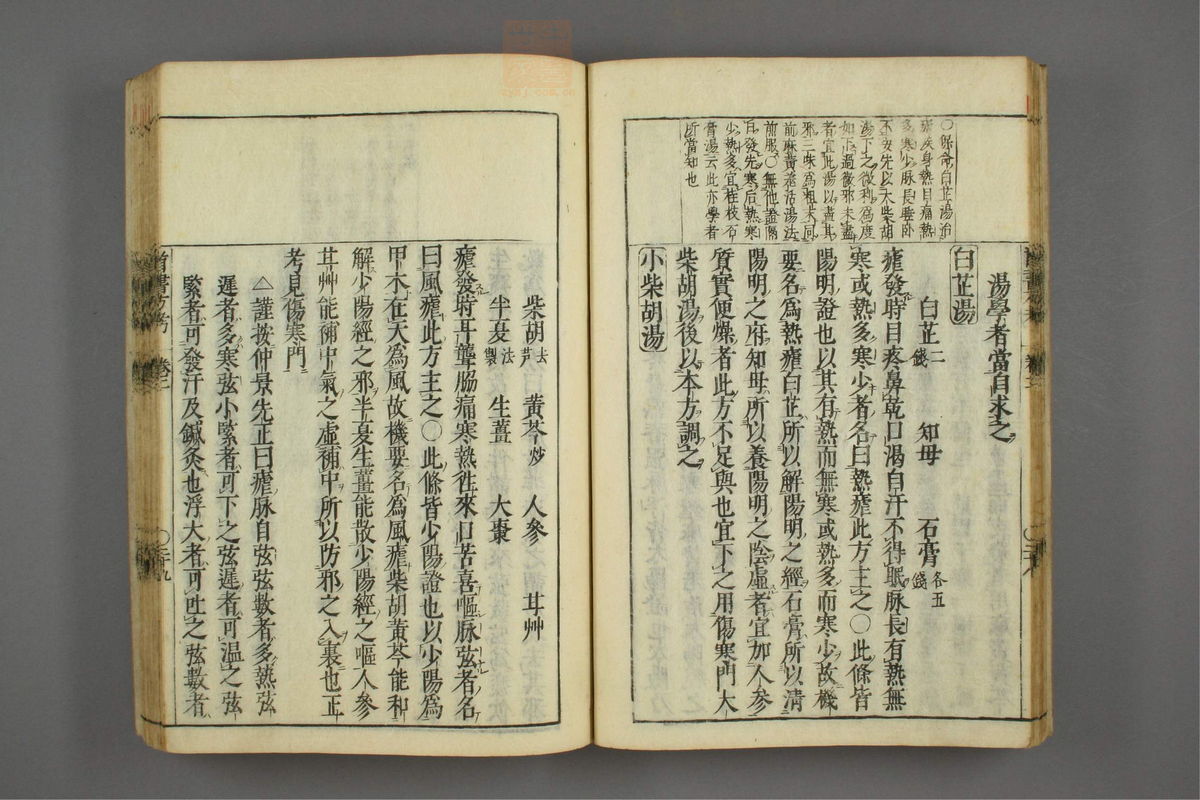 〇保命白芷湯治
瘧疾身熱目痛熱
多寒少脉長睡卧
不安先以大柴胡
湯下之微利爲度
如下過微邪未盡
者宜此湯以盡其
邪三味爲粗末同
前麻黄羌活湯法
前服〇無他證隔
日發先寒后熱寒
少熱多宜桂枝石
膏湯云此亦學者
所當知也
湯學者當自求之
白芷湯
白芷二錢 知母 石膏各五錢
瘧發時目疼鼻乾口渴自汗不得眠脉長有熱無
寒或熱多寒少者名曰熱瘧此方主之〇此條皆
陽明證也以其有熱而無寒或熱多而寒少故機
要名爲熱瘧白芷所以解陽明之經石膏所以清
陽明之府知母所以養陽明之陰虚者宜加人參
質實便燥者此方不足與也宜下之用傷寒門大
柴胡湯後以本方調之
小柴胡湯
柴胡去芦 黄芩炒 人參 甘艸
半夏法製 生薑 大棗
瘧發時耳聾脇痛寒熱徃來口苦喜嘔脉弦者名
曰風瘧此方主之〇此條皆少陽證也以少陽爲
甲木在天爲風故機要名爲風瘧柴胡黄芩能和
解少陽經之邪半夏生薑能散少陽經之嘔人參
甘艸能補中氣之虚補中所以防邪之入裏也正
考見傷寒門
△謹按仲景先正曰瘧脉自弦弦數者多熱弦
遲者多寒弦小緊者可下之弦遲者可温之弦
緊者可發汗及鍼灸也浮大者可吐之弦數者
卷三
〇二十九
zysj.com.cn